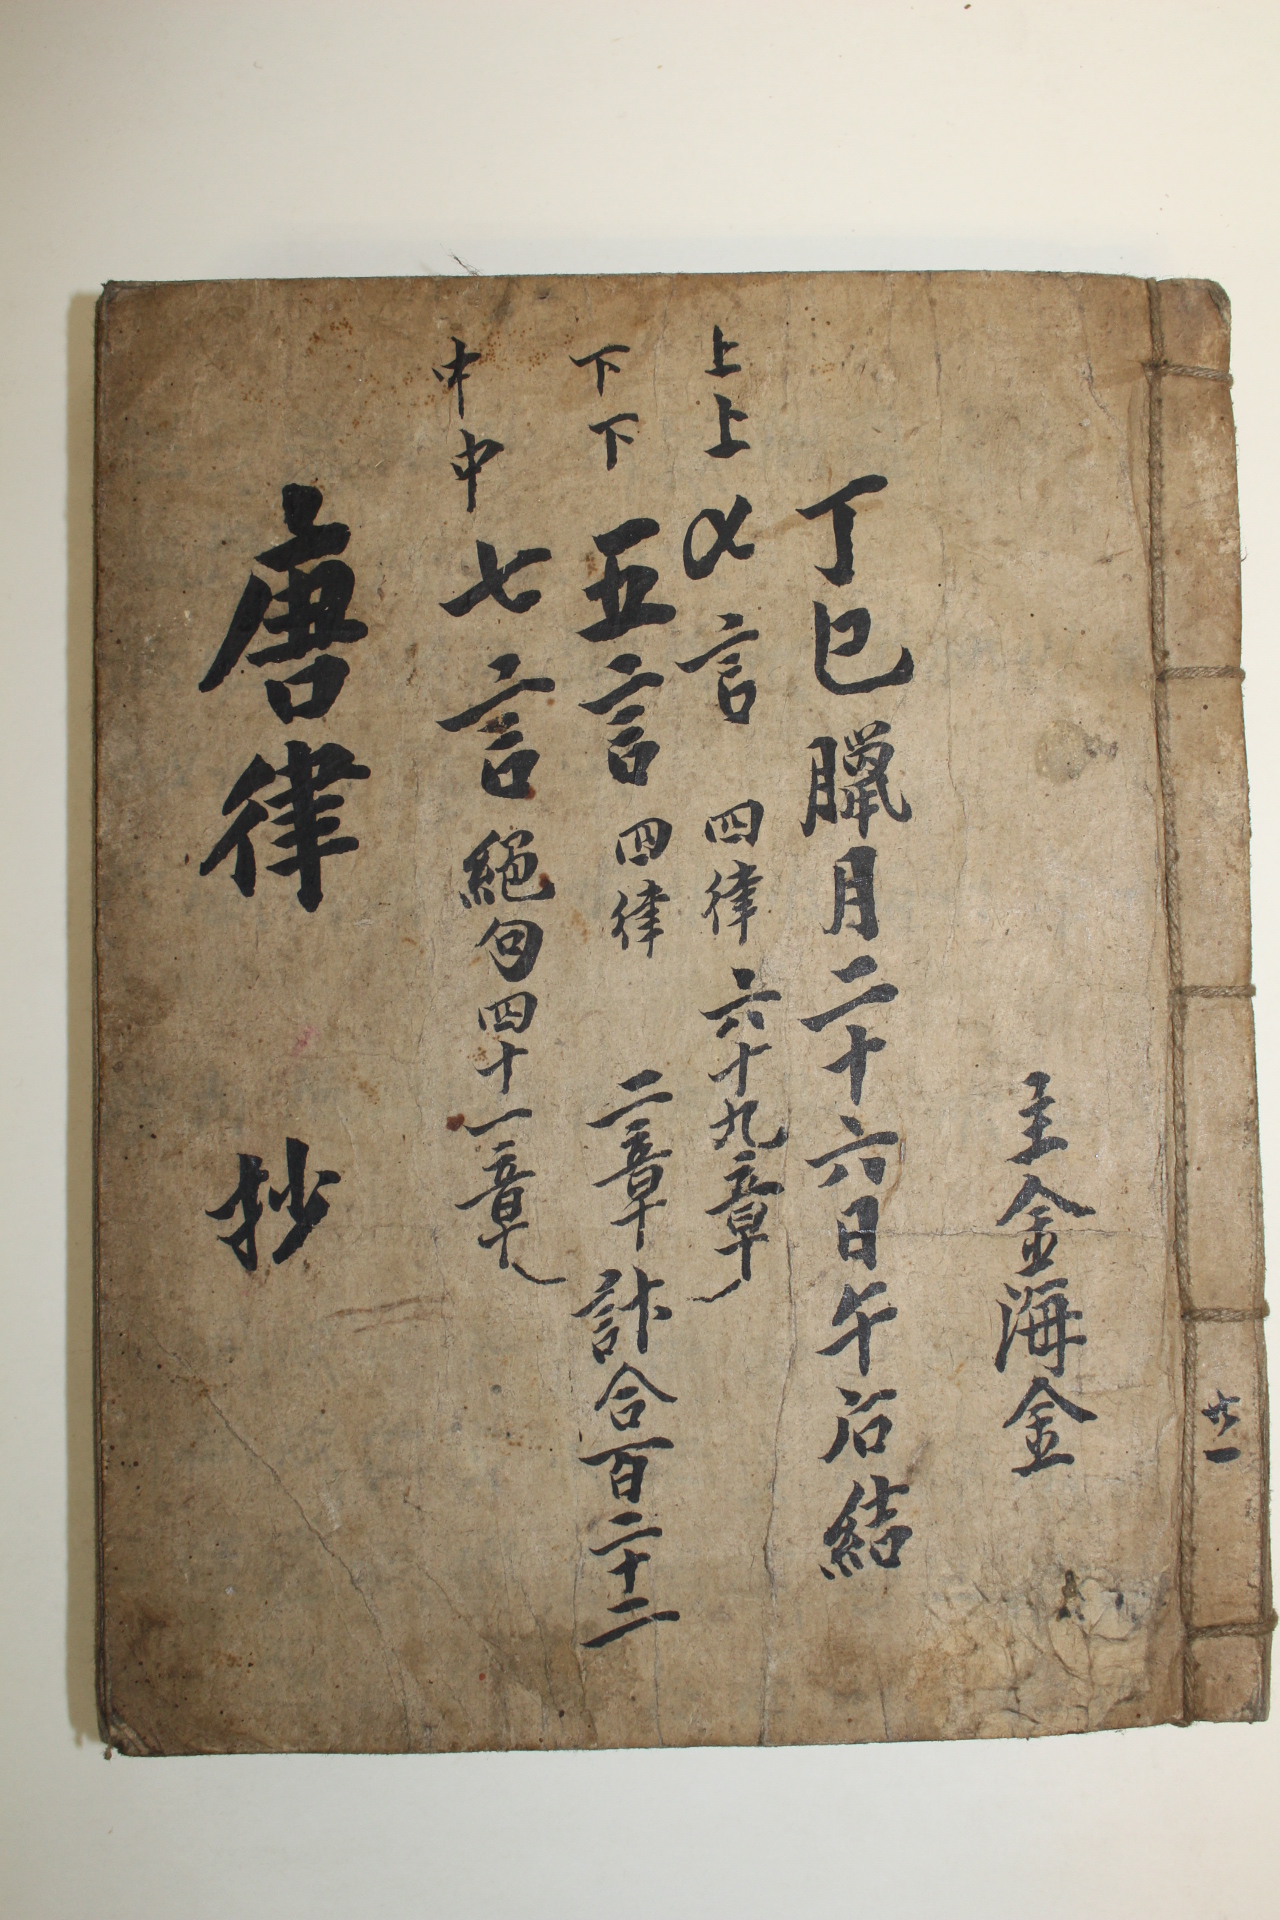 共一
主金海金
丁巳臘月二十六日午后結
上上 言 四律 六十九章
下下 五言 四律 二章 計合百二十二
中中 七言 絶句四十一章
唐律 抄